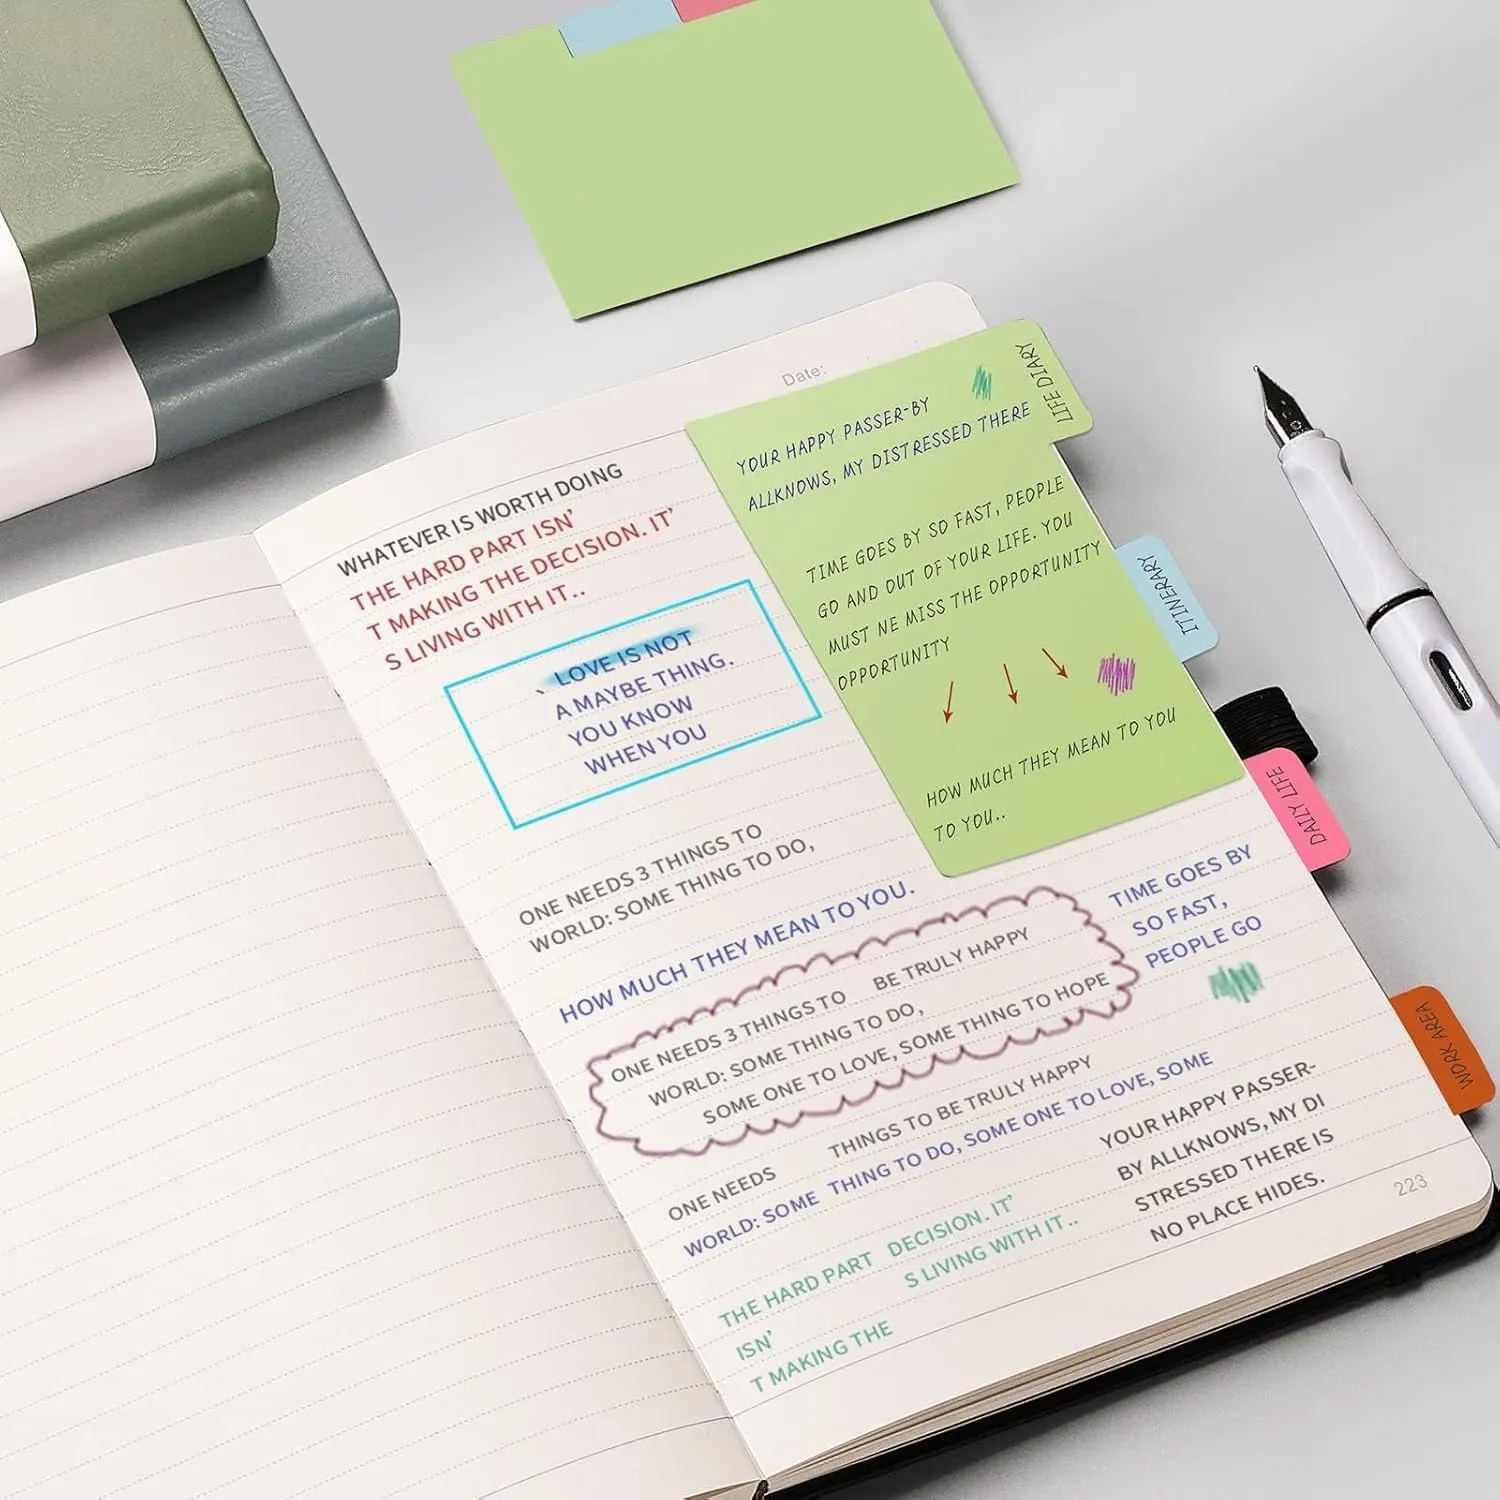 Date:
WHATEVER IS WORTH DOING
THE HARD PART ISN'
T MAKING THE DECISION. IT'
S LIVING WITH IT..
LOVE IS NOT
A MAYBE THING.
YOU KNOW
WHEN YOU
YOUR HAPPY PASSER-BY
ALLKNOWS, MY DISTRESSED THERE
TIME GOES BY SO FAST, PEOPLE
GO AND OUT OF YOUR LIFE. YOU
MUST NE MISS THE OPPORTUNITY
OPPORTUNITY
HOW MUCH THEY MEAN TO YOU
TO YOU..
LIFE DIARY
ITINERARY
DAILY LIFE
WORK AREA
ONE NEEDS 3 THINGS TO
WORLD: SOME THING TO DO,
HOW MUCH THEY MEAN TO YOU.
ONE NEEDS 3 THINGS TO BE TRULY HAPPY
WORLD: SOME THING TO DO,
SOME ONE TO LOVE, SOME THING TO HOPE
TIME GOES BY
SO FAST,
PEOPLE GO
ONE NEEDS THINGS TO BE TRULY HAPPY
WORLD: SOME THING TO DO, SOME ONE TO LOVE, SOME
YOUR HAPPY PASSER-
BY ALLKNOWS, MY DI
STRESSED THERE IS
NO PLACE HIDES.
THE HARD PART DECISION. IT'
ISN' S LIVING WITH IT..
T MAKING THE
223